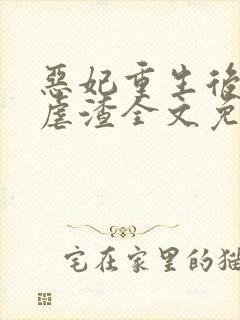 惡妃重生後
虐渣全文免
宅在家里的猫